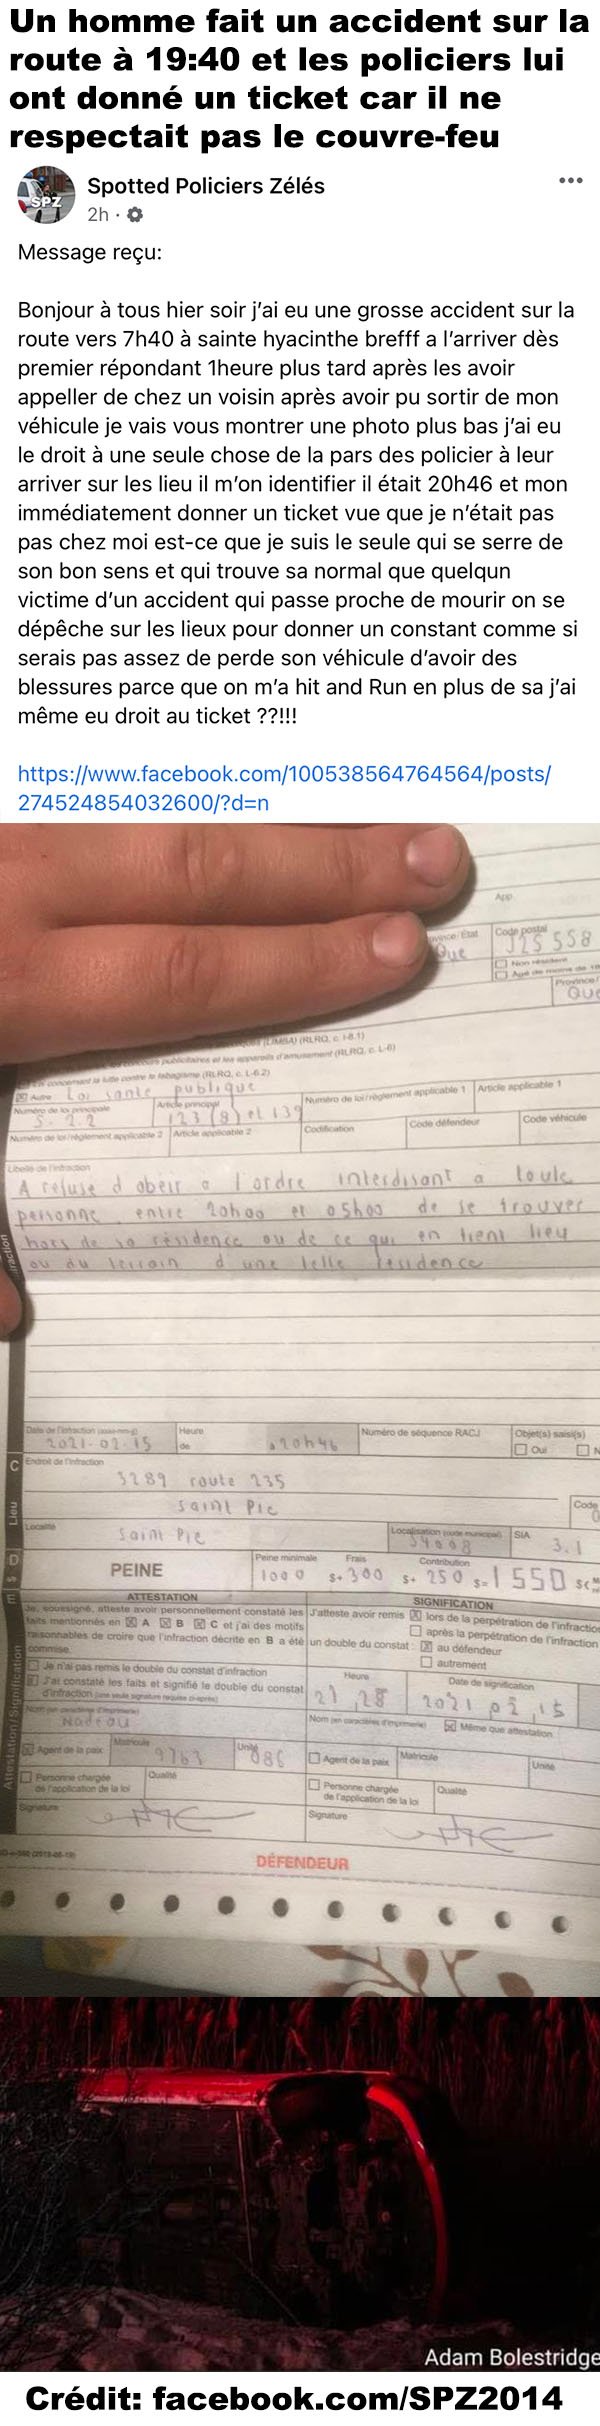 Un homme fait un accident sur la
route à 19:40 et les policiers lui
ont donné un ticket car il ne
respectait pas le couvre-feu
SPZ
Spotted Policiers Zélés
2h ·
Message reçu:
Bonjour à tous hier soir j’ai eu une grosse accident sur la
route vers 7h40 à sainte hyacinthe brefff a l’arriver dès
premier répondant 1heure plus tard après les avoir
appeller de chez un voisin après avoir pu sortir de mon
véhicule je vais vous montrer une photo plus bas j’ai eu
le droit à une seule chose de la pars des policier à leur
arriver sur les lieu il m’on identifier il était 20h46 et mon
immédiatement donner un ticket vue que je n’était pas
pas chez moi est-ce que je suis le seule qui se serre de
son bon sens et qui trouve sa normal que quelqun
victime d’un accident qui passe proche de mourir on se
dépêche sur les lieux pour donner un constant comme si
serais pas assez de perde son véhicule d’avoir des
blessures parce que on m’a hit and Run en plus de sa j’ai
même eu droit au ticket ??!!!
https://www.facebook.com/100538564764564/posts/
274524854032600/?d=n
App.
Province/État Code postal
Que J2S 5S8
Non résident
Agé de moins de 18
Province/
Que
(LIMBA) (RLRQ, c. I-8.1)
concours publicitaires et les appareils d'amusement (RLRQ, c. L-6)
concernant la lutte contre le tabagisme (RLRQ, c. L-6.2)
Autre Loi santé publique
Numéro de loi principale Article principal Numéro de loi/règlement applicable 1 Article applicable 1
S-2.2 123(8) et 139
Numéro de loi/règlement applicable 2 Article applicable 2 Codification Code défendeur Code véhicule
Libellé de l'infraction
A refusé d obeir a l ordre interdisant a toute
personne, entre 20h00 et 05h00 de se trouver
hors de sa résidence ou de ce qui en tient lieu
ou du terrain d une telle residence
Date de l'infraction Heure Numéro de séquence RACJ Objet(s) saisi(s)
2021-02-15 de à 20h46 Oui N
C Endroit de l'infraction
3289 route 235
Saint Pie
Lieu Code
Localité Localisation (code municipal) SIA
Saint Pie 54008 3.1
D PEINE Peine minimale Frais Contribution
1000 $+ 300 $+ 250 $= 1 550 $
E ATTESTATION SIGNIFICATION
Je, soussigné, atteste avoir personnellement constaté les J'atteste avoir remis lors de la perpétration de l'infraction
faits mentionnés en A B C et j'ai des motifs après la perpétration de l'infraction
raisonnables de croire que l'infraction décrite en B a été un double du constat : au défendeur
commise. autrement
Je n'ai pas remis le double du constat d'infraction
J'ai constaté les faits et signifié le double du constat Heure Date de signification
d'infraction (une seule signature requise ci-après) 21 28 2021 02 15
Nom (en caractères d'imprimerie) Nom (en caractères d'imprimerie) Même que attestation
Nadeau
Agent de la paix Matricule Unité Agent de la paix Matricule Unité
9763 086
Personne chargée Qualité Personne chargée Qualité
de l'application de la loi de l'application de la loi
Signature Signature
Attestation/Signification
DÉFENDEUR
Adam Bolestridge
Crédit: facebook.com/SPZ2014